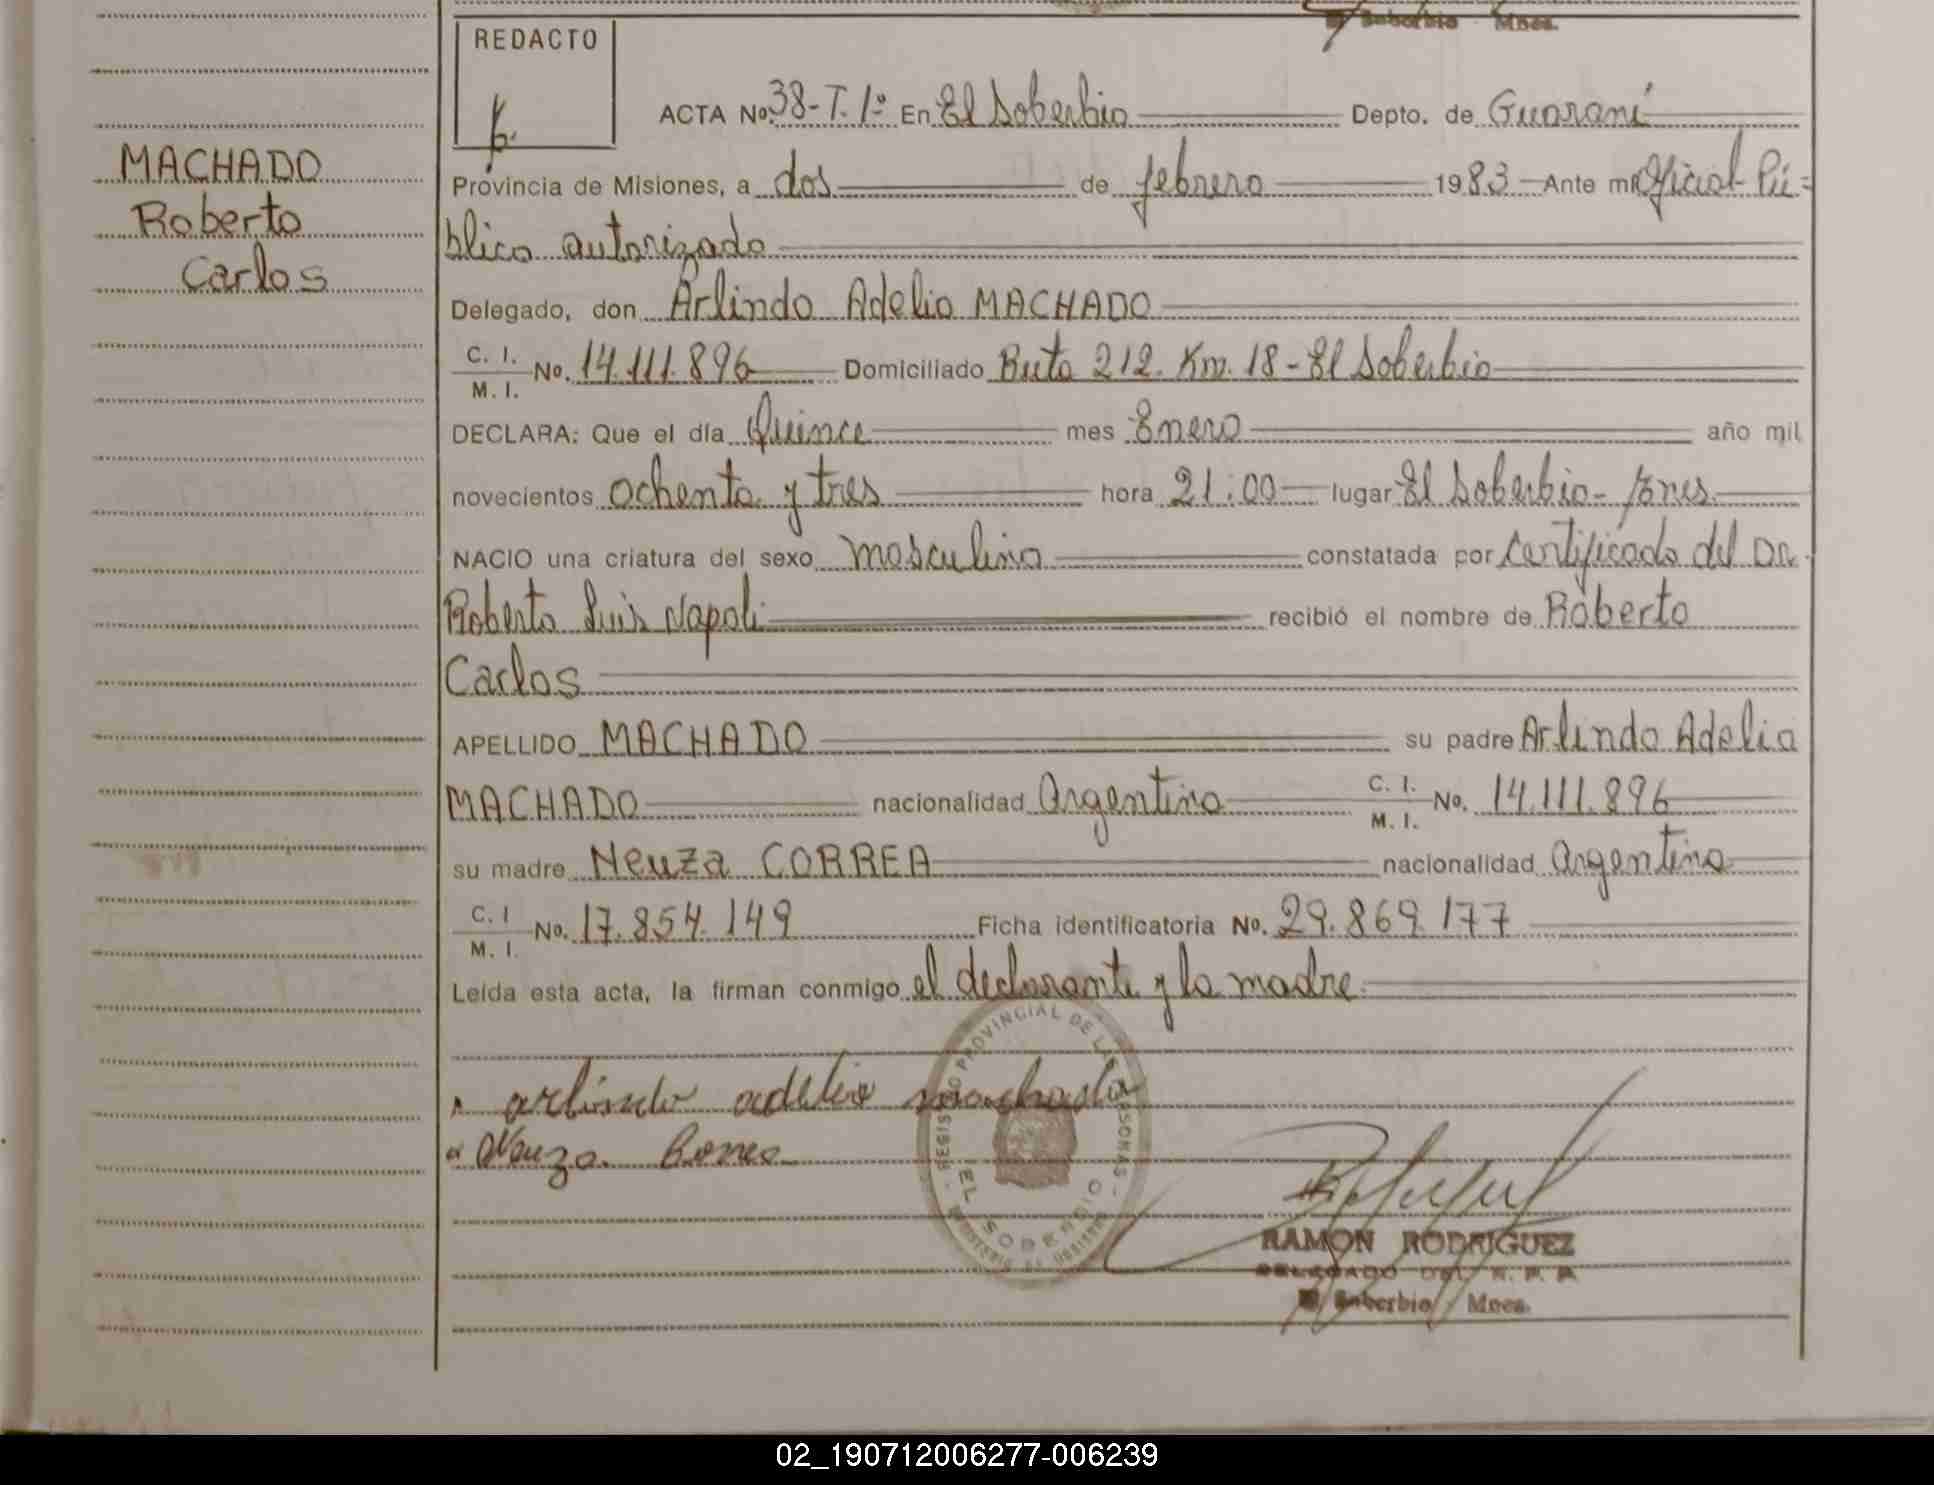 Soberbio Mnes.
REDACTO
ACTA No. 38-T. 1º En El Soberbio Depto. de Guaraní
MACHADO
Roberto
Carlos
Provincia de Misiones, a dos de febrero 1983 Ante mi Oficial Pú=
blico autorizado
Delegado, don Arlindo Adelio MACHADO
C. I. M. I. No. 14.111.896 Domiciliado Ruta 212. Km. 18 - El Soberbio
DECLARA: Que el día Quince mes Enero año mil
novecientos ochenta y tres hora 21:00 lugar El Soberbio - Mnes.
NACIO una criatura del sexo masculino constatada por Certificado del Dr.
Roberto Luis Napoli recibió el nombre de Roberto
Carlos
APELLIDO MACHADO su padre Arlindo Adelio
MACHADO nacionalidad Argentino C. I. M. I. No. 14.111.896
su madre Neuza CORREA nacionalidad Argentina
C. I M. I. No. 17.854.149 Ficha identificatoria No. 29.869.177
Leída esta acta, la firman conmigo el declarante y la madre.
arlindo adelio machado
Neuza Correa
REGISTRO PROVINCIAL DE LAS PERSONAS
EL SOBERBIO
RAMON RODRIGUEZ
DELEGADO DEL R. P. P.
El Soberbio Mnes.
02_190712006277-006239